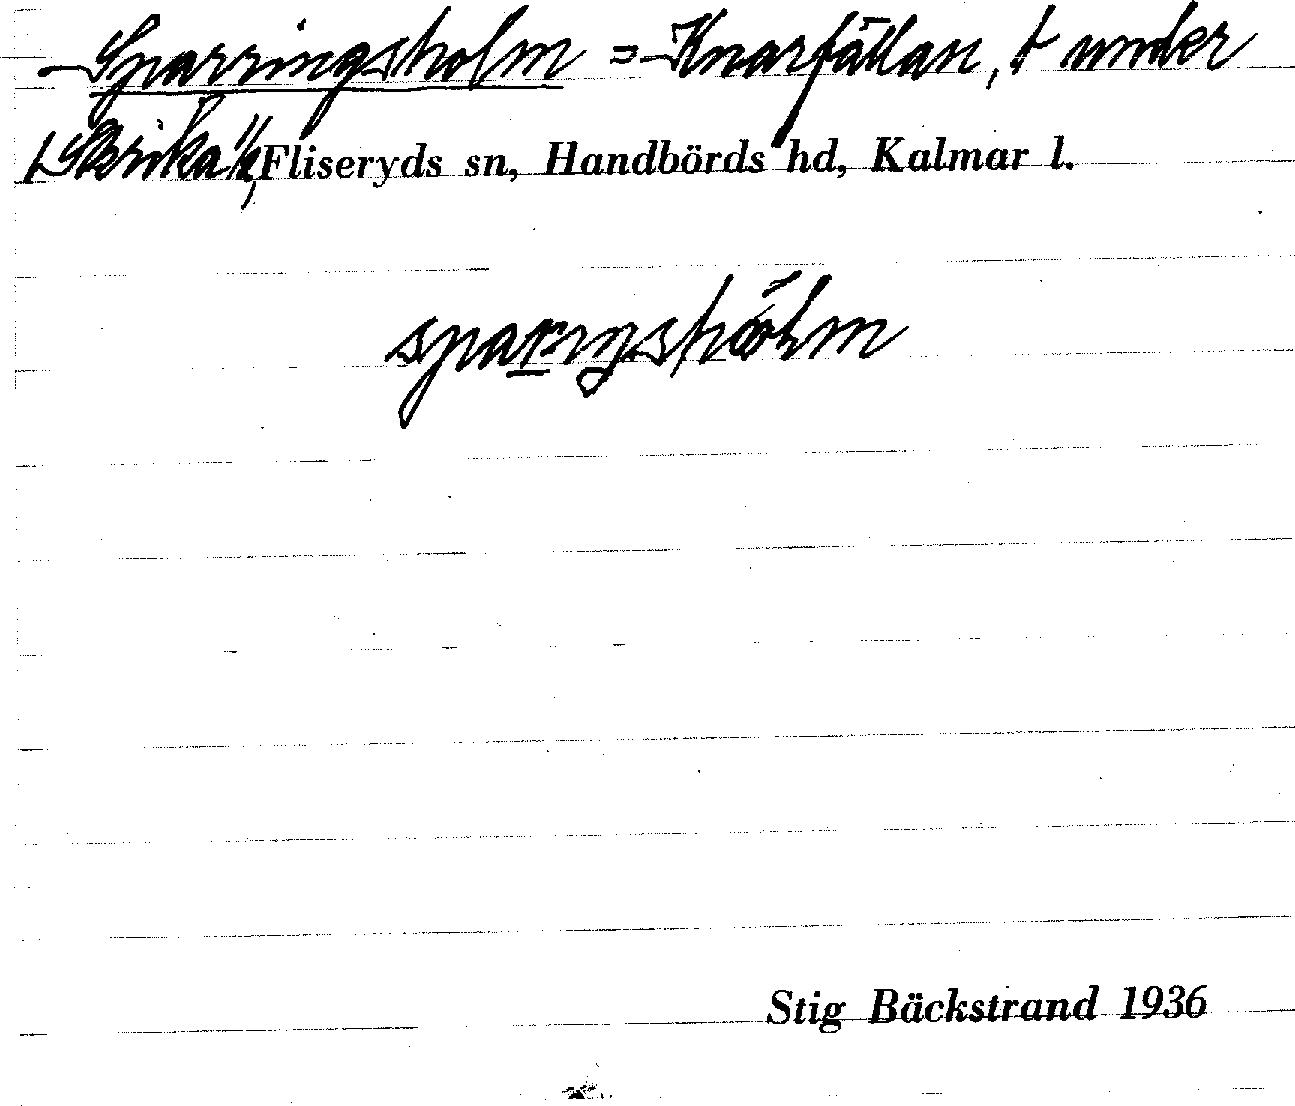 Sparringsholm = Knarfällan, t under
Skrika ½, Fliseryds sn, Handbörds hd, Kalmar l.
Stig Bäckstrand 1936